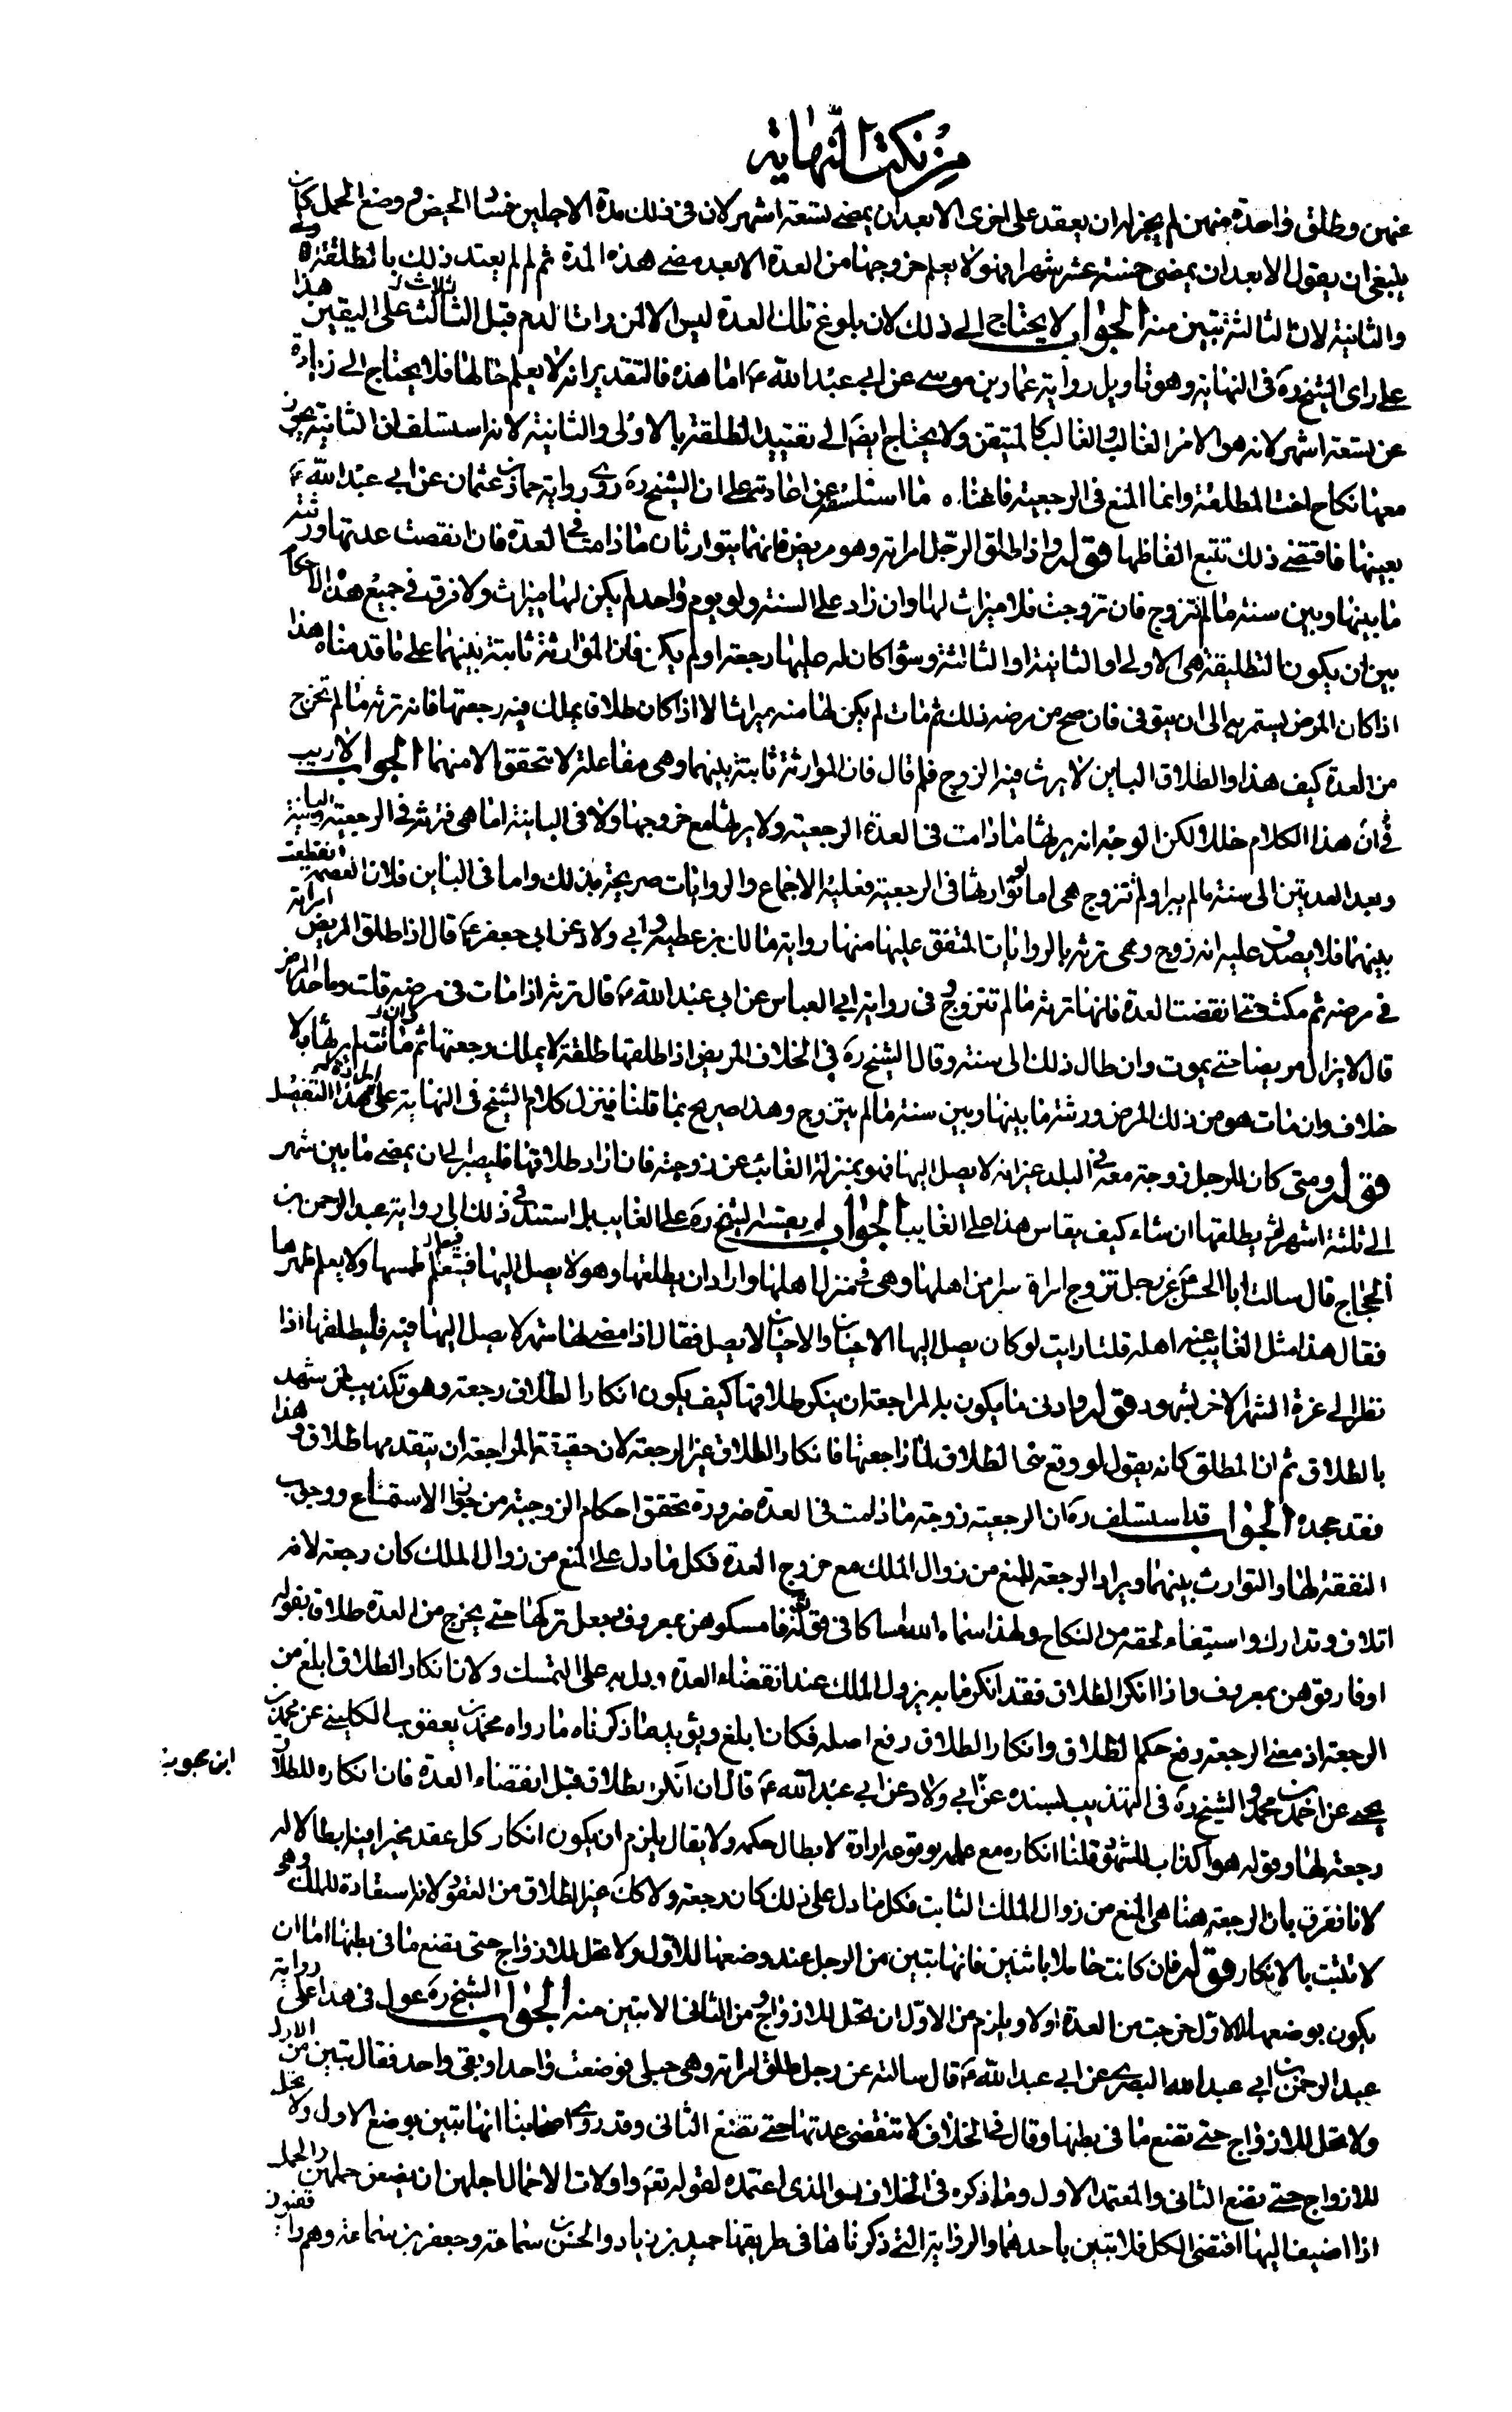 من نكت النهاية
عنهن وطلق واحدة منهن لم يجز له ان يعقد على اخرى الا بعد ان يمضى تسعة اشهر لان فى ذلك مدة الاجلين فساد الحيض و وضع الحمل كان
ينبغى ان يقول الا بعد ان يمضى خمسة عشر شهرا فهو لا يعلم خروجها من العدة الا بعد مضى هذه المدة ثم لم لم يعتد ذلك بالتطليقة الاولى
والثانية لان الثالثة تبين منه الجواب لا يحتاج الى ذلك لان بلوغ تلك العدة ليس الا لمن رات الدم قبل الثالث ثلاث على اليقين هذا
على راى الشيخ ره فى النهاية وهو تاويل رواية عمار بن موسى عن ابى عبد الله ع اما هذه فالتقدير انه لا يعلم حالها فلا يحتاج الى زيادة
عن تسعة اشهر لانه هو الامر الغالب والغالب كالمتيقن ولا يحتاج ايضا الى تقييد الطلقة بالاولى والثانية لانه استسلف ان الثانية يجوز
معها نكاح اخت المطلقة وانما المنع فى الرجعية فاغناه ما استلسفه عن اعادته على ان الشيخ ره روى رواية حماد بن عثمان عن ابى عبد الله ع
بعينها فاقتضى ذلك تتبع الفاظها قوله واذا طلق الرجل امراته وهو مريض فانهما يتوارثان ما دامت فى العدة فان انقضت عدتها ورثته
ما بينها وبين سنة ما لم تتزوج فان تزوجت فلا ميراث لها وان زاد على السنة ولو بيوم واحد لم يكن لها ميراث ولا فرق فى جميع هذه الاحكام
بين ان يكون التطليقة هى الاولى او الثانية او الثالثة وسواء كان له عليها رجعة او لم يكن فان الموارثة ثابتة بينهما على ما قدمناه هذا
اذا كان المرض يستمر به الى ان يتوفى فان صح من مرضه ذلك ثم مات لم يكن لها منه ميراث الا اذا كان طلاقا يملك فيه رجعتها فانه ترثه ما لم تخرج
من العدة كيف هذا والطلاق الباين لا يرث فيه الزوج فلم قال فان الموارثة ثابتة بينهما وهى مفاعلة لا تتحقق الا منهما الجواب لا ريب
فى ان هذا الكلام خللا لكن الوجه انه يرثها ما دامت فى العدة الرجعية ولا يرثها مع خروجها ولا فى البائنة اما هى فترثه فى الرجعية والبائنة
وبعد العدتين الى سنة ما لم يبرا ولم تتزوج هى اما توارثها فى الرجعية فعليه الاجماع والروايات صريحة بذلك واما فى الباين فلان العصمة انقطعت
بينهما فلا يصدق عليه انه زوج وهى ترثه بالروايات المتفق عليها منها رواية مالك بن عطية وابى ولاد عن ابى جعفر ع قال اذا طلق المريض امراته
فى مرضه ثم مكث حتى انقضت العدة فانها ترثه ما لم تتزوج وفى رواية ابى العباس عن ابى عبد الله ع قال ترثه اذا مات فى مرضه قلت وما حد المرض
قال لا يزال مريضا حتى يموت وان طال ذلك الى سنة وقال الشيخ ره فى الخلاف المريض اذا طلقها طلقة لا يملك رجعتها ثم ماتت لم يرثها بلا
خلاف وان مات هو من ذلك المرض ورثته ما بينها وبين سنة ما لم يتزوج وهذا صريح بما قلنا فينزل كلام الشيخ فى النهاية على هذا التفصيل
قوله ومتى كان للرجل زوجة معه فى البلد غير انه لا يصل اليها فهو بمنزلة الغائب عن زوجته فان اراد طلاقها فليصبر الى ان يمضى ما بين شهر
الى ثلثة اشهر ثم يطلقها ان شاء كيف يقاس هذا على الغايب الجواب لم يقسه الشيخ ره على الغايب بل استند فى ذلك الى رواية عبد الرحمن بن
الحجاج قال سالت ابا الحسن ع عن رجل تزوج امراة سرا من اهلها وهى فى منزل اهلها واراد ان يطلقها وهو لا يصل اليها فيعلم طمسها ولا يعلم طهرها
فقال هذا مثل الغايب عنه اهله قلت ارايت لو كان يصل اليها الاحيان والاحيان لا يصل فقال اذا مضى لها شهر لا يصل اليها فيه فليطلقها اذا
نظر الى غرة الشهر الاخر بشهود قوله وادنى ما يكون به المراجعة ان ينكر طلاقها كيف يكون انكار الطلاق رجعة وهو تكذيب لمن شهد
بالطلاق ثم ان المطلق كانه يقول لو وقع منى الطلاق لما راجعتها فانكار الطلاق غير الرجعة لان حقيقة المراجعة ان يتقدمها طلاق وهذا
فقد جحده الجواب قد استسلف ره ان الرجعية زوجة ما دامت فى العدة ضرورة تحقق احكام الزوجية من جواز الاستمتاع ووجوب
النفقة لها والتوارث بينهما ويراد الرجعة للمنع من زوال الملك مع خروج العدة فكل ما دل على المنع من زوال الملك كان رجعة لانه
اتلاف وتدارك واستيفاء لحقه من النكاح ولهذا سماه الله امساكا فى قوله تع فامسكوهن بمعروف وجعل تركها حتى يخرج من العدة طلاق بقوله
او فارقوهن بمعروف واذا انكر الطلاق فقد انكر ما به يزول الملك عند انقضاء العدة ودل به على التمسك ولان انكار الطلاق ابلغ من
الرجعة اذ معنى الرجعة رفع حكم الطلاق وانكار الطلاق رفع اصله فكان ابلغ ويؤيد ما ذكرناه ما رواه محمد بن يعقوب الكلينى عن محمد بن
يحيى عن احمد بن محمد والشيخ ره فى التهذيب بسنده عن ابى ولاد عن ابى عبد الله ع قال ان انكر بطلاق قبل انقضاء العدة فان انكاره للطلاق
ابن محبوب
رجعة لها وقوله هو اكذاب للشهود قلنا انكاره مع علمه بوقوعه ارادة لابطال حكمه ولا يقال يلزم ان يكون انكار كل عقد مخبرا فيه ابطالا له
لانا نفرق بان الرجعة هنا هى المنع من زوال الملك الثابت فكل ما دل على ذلك كان رجعة ولا كك غير الطلاق من العقود لانه استفادة للملك وهو
لا تثبت بالانكار قوله فان كانت حاملا باثنين فانها تبين من الرجل عند وضعها للاول ولا تحل للازواج حتى تضع ما فى بطنها اما ان
يكون بوضعها للاول خرجت من العدة اولا ويلزم من الاول ان تحل للازواج ومن الثانى الا تبين منه الجواب الشيخ ره عول فى هذا على رواية
عبد الرحمن بن ابى عبد الله البصرى عن ابى عبد الله ع قال سالته عن رجل طلق امراته وهى حبلى فوضعت واحدا وبقى واحد فقال تبين من الاول
ولا تحل للازواج حتى تضع ما فى بطنها وقال فى الخلاف لا تنقضى عدتها حتى تضع الثانى وقد روى اصحابنا انها تبين بوضع الاول ولا تحل
للازواج حتى تضع الثانى والمعتمد الاول وما ذكره فى الخلاف هو الذى اعتمده لقوله تع واولات الاحمال اجلهن ان يضعن حملهن والحمل
اذا اضيف اليها اقتضى الكل فلا تبين باحدهما والرواية التى ذكرناها فى طريقها حميد بن زياد والحسن بن سماعة وجعفر بن سماعة وهم